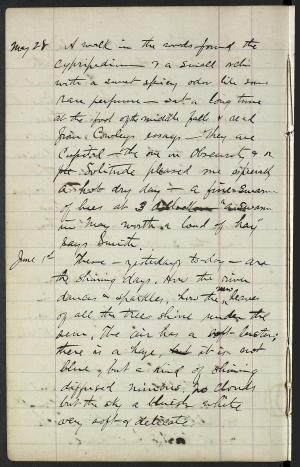 May 28 A walk in the woods found the
cypripedium — & a small
with a sweet spicy odor like some
rare perfume — sat a long time
at the foot of the middle fall & read
from Cowleys essays — They are
Capital — the one on Obscurity & on
Solitude pleased me
a hot dry day — a fine swarm
of bees at 3 "A swarm
in May worth a load of hay"
says Smith.
June 1st These — yesterday & to-day — are
the shining days, How the river
dances & sparkles, how the new leaves
of all the trees shine under the
sun, The air has a soft luster,
there is a haze, but it is not
blue, but a kind of shining
diffused nimbus, no clouds
but the sky a bluish white
very soft & delicate